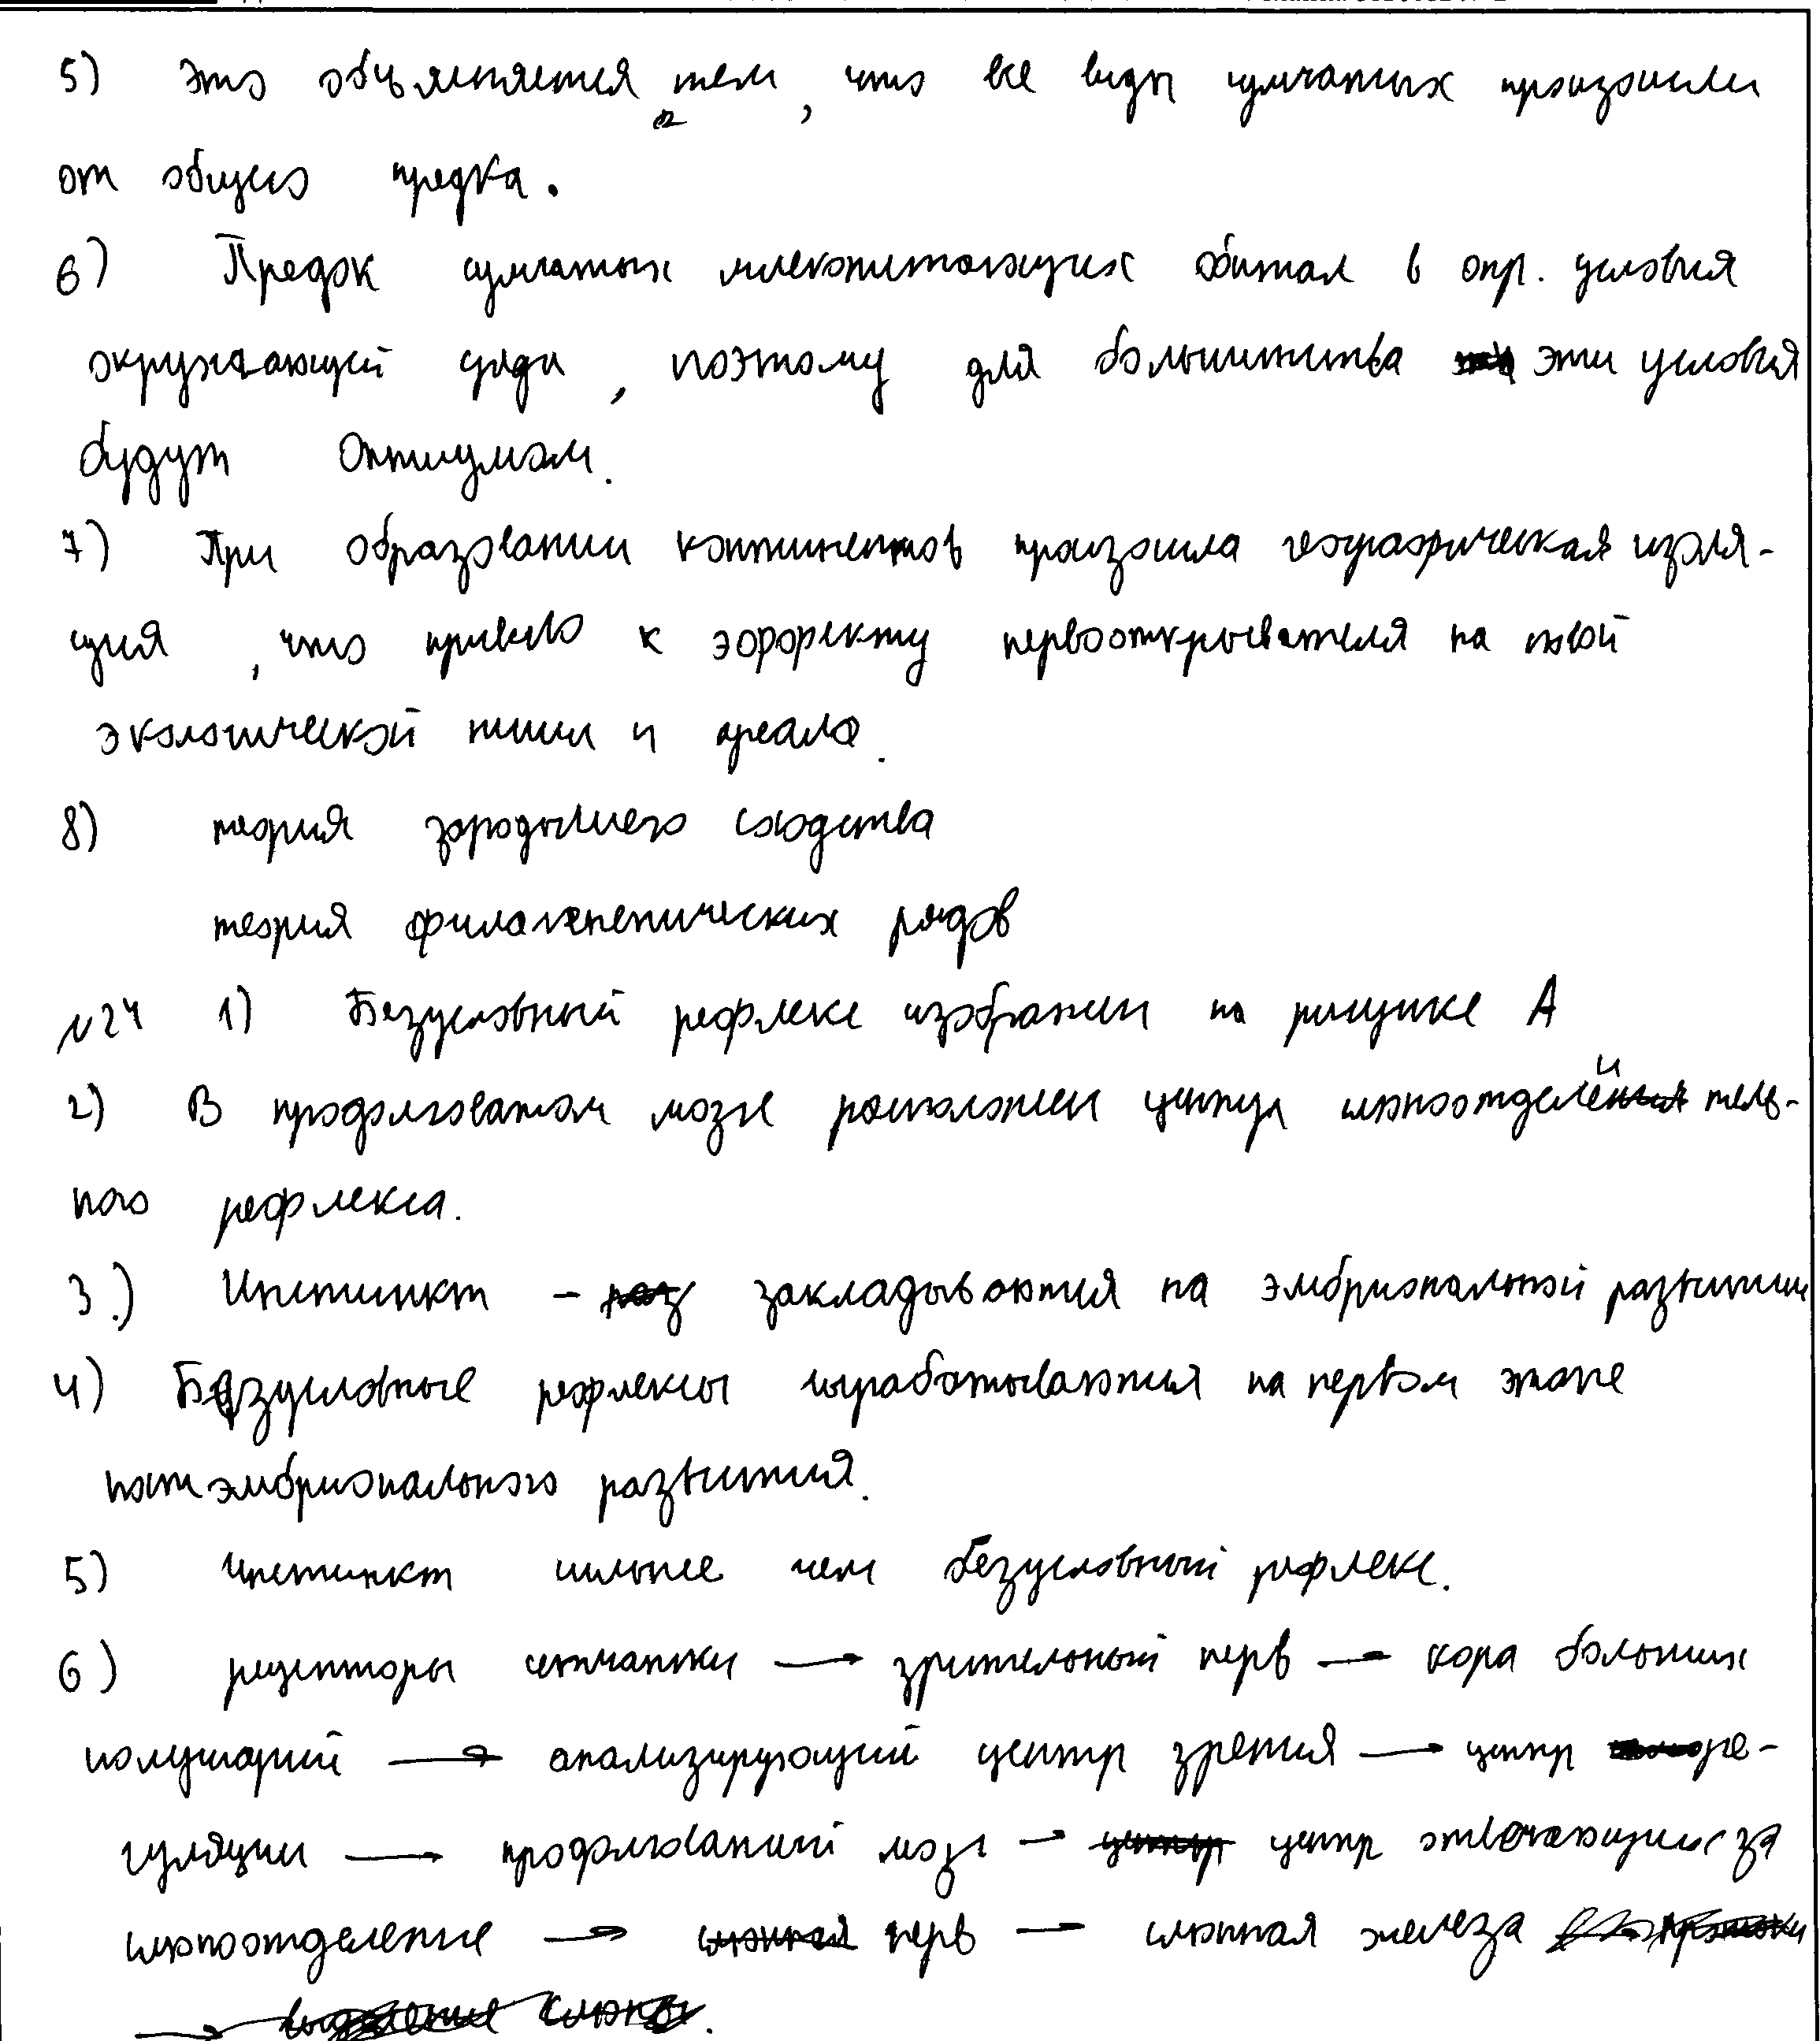 5) Это объясняется тем, что все виды сумчатых произошли
от общего предка.
6) Предок сумчатых млекопитающих обитал в опр. условия
окружающей среды, поэтому для большинства эти условия
будут оптиумом.
7) При образовании континентов произошла географическая изоля-
ция, что привело к эффекту первооткрывателя на новой
экологической ниши и ареала.
8) теория зародышего сходства
теория филагенетических рядов
№24 1) Безусловный рефлекс изображен на рисунке А
2) В продолговатом мозге расположен центр слюноотделитель-
ного рефлекса.
3.) Инстинкт - закладываются на эмбриональной развитии
4) Безусловные рефлексы вырабатываются на первом этапе
постэмбрионального развития.
5) Инстинкт сильнее чем безусловный рефлекс.
6) рецепторы сетчатки → зрительный нерв → кора больших
полушарий → анализирующий центр зрения → центр ре-
гуляции → продолговатый мозг → центр отвечающих за
слюноотделение → нерв → слюнная железа
→ выделение слюны.